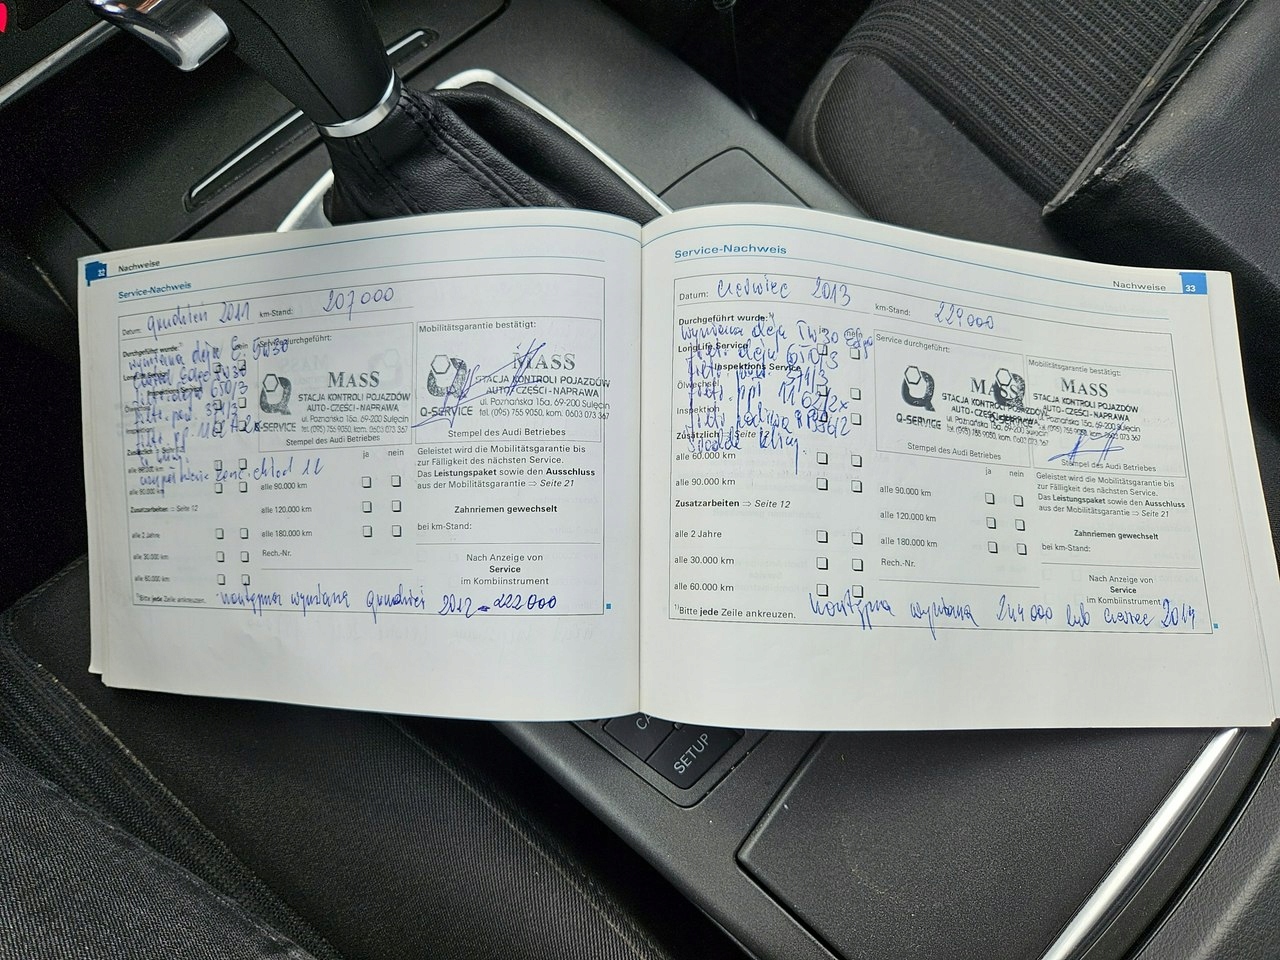 32 Nachweise
Service-Nachweis
Datum: grudzień 2011 km-Stand: 207000
Durchgeführt wurde:
wymiana oleju
5W30
Service durchgeführt:
MASS
STACJA KONTROLI POJAZDÓW
AUTO-CZĘŚCI-NAPRAWA
ul. Poznańska 15a, 69-200 Sulęcin
tel. (095) 755 9050, kom. 0603 073 367
Q-SERVICE
Stempel des Audi Betriebes
Mobilitätsgarantie bestätigt:
MASS
STACJA KONTROLI POJAZDÓW
AUTO-CZĘŚCI-NAPRAWA
ul. Poznańska 15a, 69-200 Sulęcin
tel. (095) 755 9050, kom. 0603 073 367
Q-SERVICE
Stempel des Audi Betriebes
ja nein
alle 90.000 km
alle 120.000 km
alle 180.000 km
Rech.-Nr.
Geleistet wird die Mobilitätsgarantie bis
zur Fälligkeit des nächsten Service.
Das Leistungspaket sowie den Ausschluss
aus der Mobilitätsgarantie ⇒ Seite 21
Zahnriemen gewechselt
bei km-Stand:
Nach Anzeige von
Service
im Kombiinstrument
Zusatzarbeiten ⇒ Seite 12
alle 2 Jahre
alle 30.000 km
alle 60.000 km
¹⁾Bitte jede Zeile ankreuzen.
następna wymiana grudzień 2012 222000
Nachweise 33
Service-Nachweis
Datum: czerwiec 2013 km-Stand: 229000
Durchgeführt wurde:
wymiana oleju 5W30 Edge
LongLife Service
filtr oleju 650/3
Inspektions Service
Ölwechsel
Inspektion
Zusätzlich Seite
alle 60.000 km
alle 90.000 km
Zusatzarbeiten ⇒ Seite 12
alle 2 Jahre
alle 30.000 km
alle 60.000 km
¹⁾Bitte jede Zeile ankreuzen.
Service durchgeführt:
MASS
STACJA KONTROLI POJAZDÓW
AUTO-CZĘŚCI-NAPRAWA
ul. Poznańska 15a, 69-200 Sulęcin
Q-SERVICE
Stempel des Audi Betriebes
Mobilitätsgarantie bestätigt:
MASS
STACJA KONTROLI POJAZDÓW
AUTO-CZĘŚCI-NAPRAWA
ul. Poznańska 15a, 69-200 Sulęcin
Q-SERVICE
Stempel des Audi Betriebes
ja nein
alle 90.000 km
alle 120.000 km
alle 180.000 km
Rech.-Nr.
Geleistet wird die Mobilitätsgarantie bis
zur Fälligkeit des nächsten Service.
Das Leistungspaket sowie den Ausschluss
aus der Mobilitätsgarantie ⇒ Seite 21
Zahnriemen gewechselt
bei km-Stand:
Nach Anzeige von
Service
im Kombiinstrument
następna wymiana 244000 lub czerwiec 2014
CA
SETUP